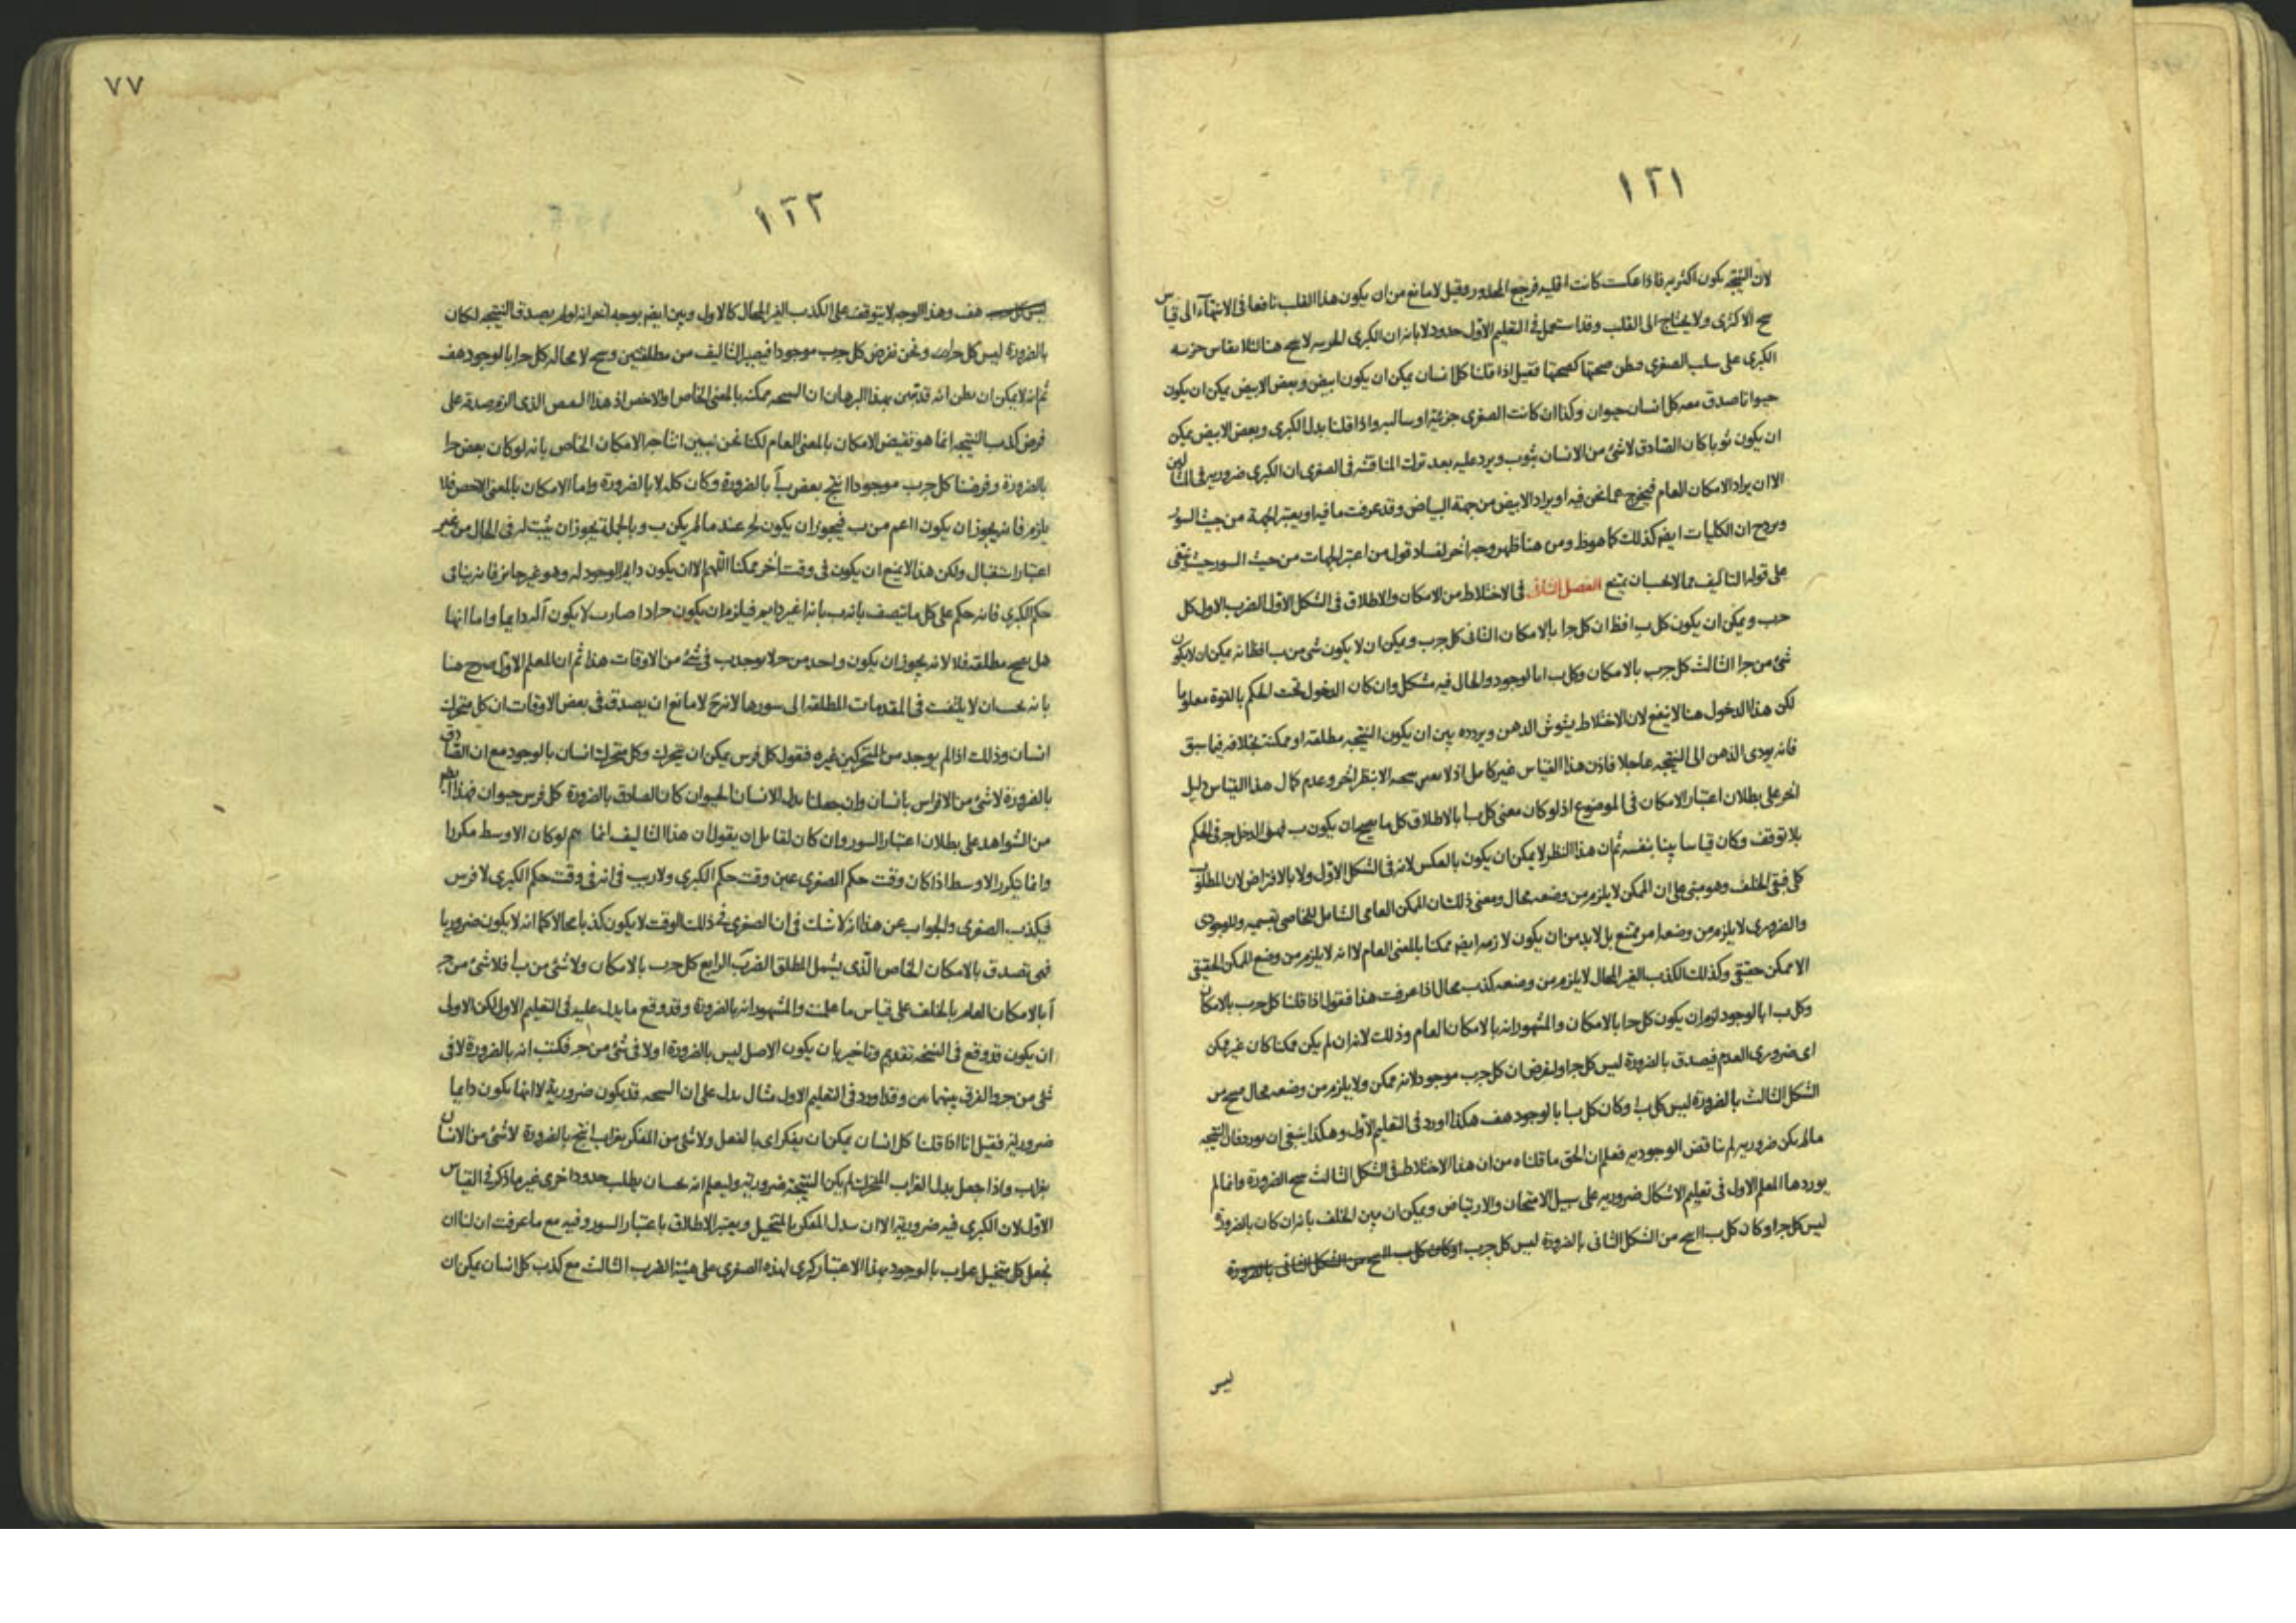 ١٢١
لان النتيجة يكون اكثريه فاذا عكست كانت اقليه فرجع المحذور وقيل لا مانع من ان يكون هذا القلب نافعا فى الانتهآء الى قياس
الاكثرى ولا يحتاج الى القلب وقد استعمل فى التعليم الاول حدود لابانه ان الكبرى
الكبرى على سلب الصغرى وظن صحتها كصحتها فقيل اذا قلنا كل انسان يمكن ان يكون ابيض وبعض الابيض يمكن ان يكون
حيوانا صدق معه كل انسان حيوان وكذا ان كانت الصغرى جزئية او سالبه واذا قلنا بدل الكبرى وبعض الابيض يمكن
ان يكون ثوبا كان الصادق لا شئ من الانسان بثوب ويرد عليه بعد ترك المناقشه فى الصغرى ان الكبرى ضروريه فى المثالين
الا ان يراد الامكان العام فيخرج عما نحن فيه او يراد الابيض من جهة البياض وقد عرفت ما فيه او يعتبر الجهة من حيث السور
ويرد ح ان الكليات ايضه كذلك كما هو ظ ومن هنا ظهر وجه آخر لفساد قول من اعتبر الجهات من حيث السور حيث
على قوله التاليف الفصل الثانى فى الاختلاط من الامكان والاطلاق فى الشكل الاول الضرب الاول كل
حب ويمكن ان يكون كل ب ا فظ ان كل ح ا بالامكان الثانى كل ح ب ويمكن ان لا يكون شئ من ب ا فظ انه يمكن ان لا يكون
شئ من ح ا الثالث كل ح ب بالامكان وكل ب ا بالوجود والحال فيه مشكل وان كان الدخول تحت الحكم بالقوة معلوما
لكن هذا الدخول هنا لا ينفع لان الاختلاط يشوش الذهن ويردده بين ان يكون النتيجه مطلقه او ممكنه بخلافه فيما سبق
فانه يودى الذهن الى النتيجه عاجلا فاذن هذا القياس غير كامل اذ لا الا بنظر آخر وعدم كمال هذا القياس دليل
آخر على بطلان اعتبار الامكان فى الموضوع اذ لو كان معنى كل ب ا بالاطلاق كل ما يصح ان يكون ب فهو ا لدخل ح فى الحكم
بلا توقف وكان قياسا بينا بنفسه ثم ان هذا النظر لا يمكن ان يكون بالعكس لانه فى الشكل الاول ولا بالافتراض لان المطلوب
كلى فبقى الخلف وهو مبنى على ان الممكن لا يلزم من وضعه محال ومعنى ذلك ان الممكن العامى الشامل للخاصى بقسميه وللوجودى
والضرورى لا يلزم من وضعه امر ممتنع بل لا بد من ان يكون لازمه ايضه ممكنا بالمعنى العام لا انه لا يلزم من وضع الممكن الحقيقى
الا ممكن حقيقى وكذلك الكذب الغير المحال لا يلزم من وضعه كذب محال اذا عرفت هذا فنقول اذا قلنا كل ح ب بالامكان
وكل ب ا بالوجود لزم ان يكون كل ح ا بالامكان والمشهور انه بالامكان العام وذلك لانه ان لم يكن ممكنا كان غير ممكن
اى ضرورى العدم فيصدق بالضرورة ليس كل ح ا ولنفرض ان كل ح ب موجود لانه ممكن ولا يلزم من وضعه محال من
الشكل الثالث بالضرورة ليس كل ب ا وكان كل ب ا بالوجود هف هكذا اورد فى التعليم الاول وهكذا ينبغى ان يورد فان النتيجه
ما لم يكن ضروريه لم يناقض الوجوديه فعلم ان الحق ما قلناه من ان هذا الاختلاط فى الشكل الثالث الضرورة وانما لم
يوردها المعلم الاول فى تعليم الاشكال ضروريه على سبيل الامتحان والارتياض ويمكن ان يبين الخلف بانه ان كان بالضرورة
ليس كل ح ا وكان كل ب ا من الشكل الثانى بالضرورة ليس كل ح ب
ليس
٧٧
١٢٢
هف وهذا الوجه لا يتوقف على الكذب الغير المحال كالاول وبين ايضه بوجه آخر انه لو لم يصدق النتيجه لكان
بالضرورة ليس كل ح ا ونحن نفرض كل ح ب موجودا فيصير التاليف من مطلقتين لا محاله كل ح ا بالوجود هف
ثم انه لا يمكن ان يظن انه قد تبين بهذا البرهان ان النتيجه ممكنه بالمعنى الخاص او الاخص اذ هذا النقيض الذى الزم صدقه على
فرض كذب النتيجه انما هو نقيض الامكان بالمعنى العام لكنا نحن نبين انتاجه الامكان الخاص بانه لو كان بعض ح ا
بالضرورة وفرضنا كل ح ب موجودا انتج بعض ب آ بالضرورة وكان كله لا بالضرورة واما الامكان بالمعنى الاخص فلا
يلزم فانه يجوز ان يكون ا اعم من ب فيجوز ان يكون لح عند ما لم يكن ب وبالجملة يجوز ان يثبت له فى الحال من غير
اعتبار استقبال ولكن هذا لا يمنع ان يكون فى وقت آخر ممكنا اللهم الا ان يكون دايم الوجود له وهو غير جايز فانه ينافى
حكم الكبرى فانه حكم على كل ما يتصف بانه ب بانه ا غير دايم فيلزم ان يكون ح اذا صار ب لا يكون آ له دايما واما انها
هل مطلقه فلا لانه يجوز ان يكون واحد من ح لا يوجد ب فى شئ من الاوقات هذا ثم ان المعلم الاول صرح هنا
بانه يجب ان لا يلتفت فى المقدمات المطلقه الى سورها لانه ح لا مانع ان يصدق فى بعض الاوقات ان كل متحرك
انسان وذلك اذا لم يوجد من المتحركين غيره فنقول كل فرس يمكن ان يتحرك وكل متحرك انسان بالوجود مع ان الصادق
بالضرورة لا شئ من الافراس بانسان وان جعلنا بدل الانسان الحيوان كان الصادق بالضرورة كل فرس حيوان فهذا ايضه
من الشواهد على بطلان اعتبار السور وان كان لقايل ان يقول ان هذا التاليف انما يتم لو كان الاوسط مكررا
وانما يتكرر الاوسط اذا كان وقت حكم الصغرى عين وقت حكم الكبرى ولا ريب فى انه فى وقت حكم الكبرى لا فرس
فيكذب الصغرى والجواب عن هذا انه لا شك فى ان الصغرى فى ذلك الوقت لا يكون كذبا محالا كما انه لا يكون ضروريا
فهى تصدق بالامكان الخاص الذى يشمل المطلق الضرب الرابع كل ح ب بالامكان ولا شئ من ب ا فلا شئ من ح
آ بالامكان العام بالخلف على قياس ما علمت والمشهور انه بالضرورة وقد وقع ما يدل عليه فى التعليم الاول لكن الاولى
ان يكون قد وقع فى النسخه تقديم وتاخير بان يكون الاصل ليس بالضرورة ا ولا فى شئ من ح فكتب انه بالضرورة لا فى
شئ من ح والفرق بينهما بين وقد اورد فى التعليم الاول مثال يدل على ان النتيجه قد يكون ضرورية لا انها يكون دايما
ضرورية فقيل انا اذا قلنا كل انسان يمكن ان يفكر اى بالفعل ولا شئ من المفكر بغراب انتج بالضرورة لا شئ من الانسان
بغراب واذا جعل بدل الغراب المتحرك لم يكن النتيجة ضرورية وليعلم انه يجب ان يطلب حدود اخرى غير ما ذكر فى القياس
الاول لان الكبرى فيه ضرورية الا ان يبدل المفكر بالمتخيل ويعتبر الاطلاق باعتبار السور وفيه مع ما عرفت ان لنا ان
نجعل كل متخيل غراب بالوجود بهذا الاعتبار كبرى لهذه الصغرى على هيئة الضرب الثالث مع كذب كل انسان يمكن ان